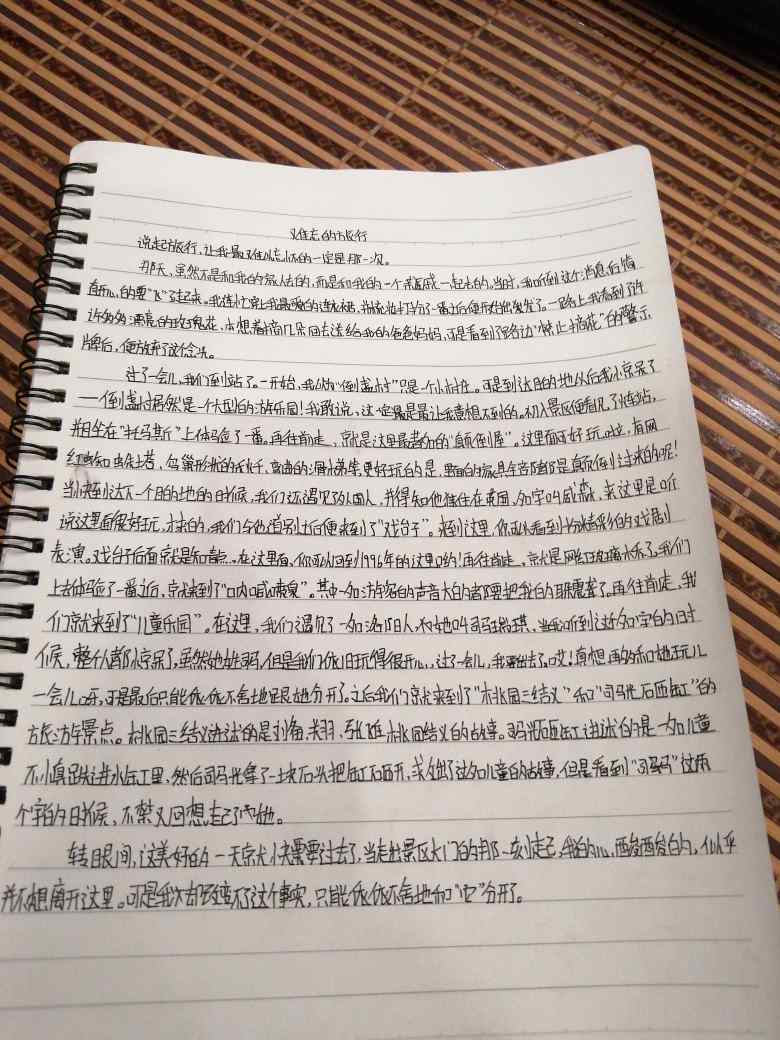 难忘的旅行
说起旅行,让我最难以忘怀的一定是那一次。
那天,虽然不是和我的家人去的,而是和我的一个亲戚一起去的,当时,我听到这个消息后简
直开心的要“飞”了起来。我连忙穿上我最的连衣裙,并打扮了一番过后便开始出发了。一路上我看到了许
许多多漂亮的玫瑰花,本想着摘几朵回去送给我的爸爸妈妈,可是看到了路边“禁止摘花”的警示
牌后,便放弃了这念头。
过了一会儿,我们到站了。一开始,我以为“倒盏村”只是一个小村庄。可是到达目的地以后我惊呆了
——倒盏村居然是一个大型的游乐园!我敢说,这一定是最让我意想不到的。初入景区便看见了火车站,
并且坐在“托马斯”上体验了一番。再往前走,就是这里最著名的“颠倒屋”。这里面可好玩啦,有网
红蜘蛛塔、鸟巢形状的秋千、弯曲的滑梯等,更好玩的是,里面的家具全部都是颠倒过来的呢!
当来到达下一个目的地的时候,我们还遇见了外国人,并得知他住在英国,名字叫威森,来这里是听
说这里面很好玩,才来的,我们与他道别过后便来到了“戏台子”。来到这里,你可以看到十分精彩的戏剧
表演。戏台子后面就是知青点,在这里面,你可以回到1996年的这里哟!再往前走,就是网红玻璃水乐了,我们
上去体验了一番过后,就来到了“呐喊喷泉”。其中一名游客的声音大的都要把我的耳朵震聋了。再往前走,我
们就来到了“儿童乐园”。在这里,我们遇见了一名洛阳人,他叫司马琪,当我听到这个名字的时
候,整个人都惊呆了,虽然她姓司马,但是我们依旧玩得很开心,过了一会儿,我要出去了。哎!真想再多和她玩儿
一会儿呀,可是最后只能依依不舍地跟她分开了。之后我们就来到了“桃园三结义”和“司马光石砸缸”的
旅游景点。桃园三结义讲述的是刘备、关羽、张飞桃园结义的故事。司马光砸缸讲述的是一名儿童
不小心跌进水缸里,然后司马光拿了一块石头把缸砸开,救出了这名儿童的故事,但是看到“司马”这两
个字的时候,不禁又回想起了她。
转眼间,这美好的一天就快要过去了,当走出景区大门的那一刻起,我的心,酸酸的,似乎
并不想离开这里。可是我却改变不了这个事实,只能依依不舍地和“它”分开了。